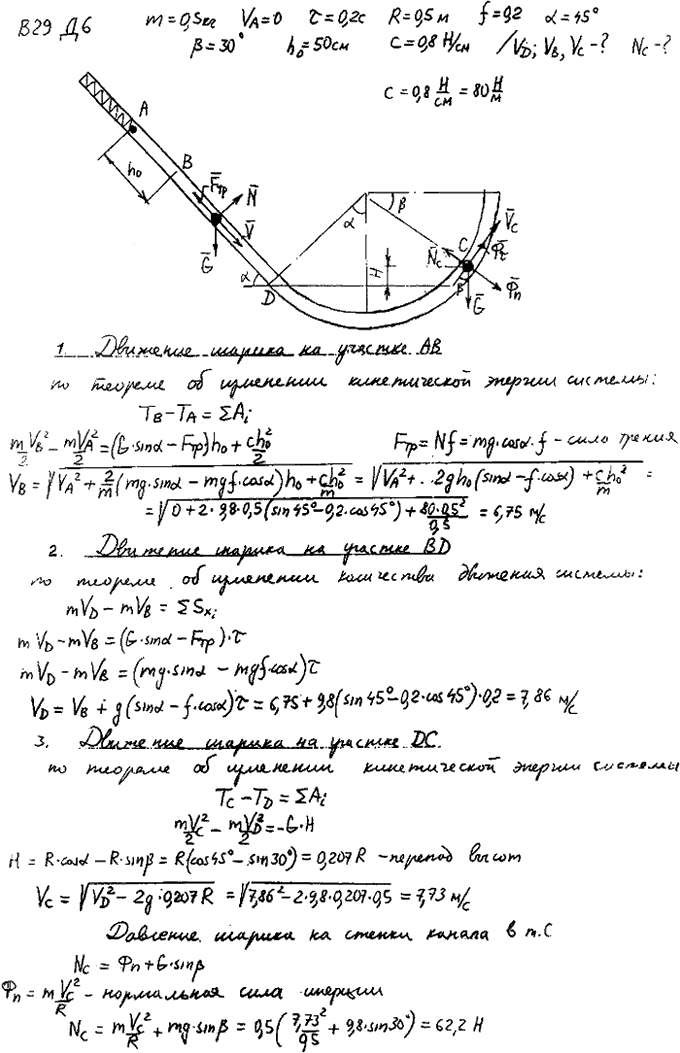 В29 Д6 m=0,5кг V_A=0 τ=0,2с R=0,5м f=0,2 α=45°
β=30° h₀=50см c=0,8 Н/см /V_D; V_B, V_C -? N_C -?
c=0,8 Н/см = 80 Н/м
A
h₀
B
F̄тр
N̄
V̄
Ḡ
α
D
α
β
H
C
N̄_C
V̄_C
Φ̄_τ
Φ̄_n
β
Ḡ
1. Движение шарика на участке AB
по теореме об изменении кинетической энергии системы:
T_B - T_A = ΣA_i
mV_B²/2 - mV_A²/2 = (G·sinα - Fтр)h₀ + ch₀²/2 Fтр = Nf = mg·cosα·f - сила трения
V_B = √(V_A² + 2/m (mg·sinα - mgf·cosα)h₀ + ch₀²/m) = √(V_A² + 2gh₀(sinα - f·cosα) + ch₀²/m) =
= √(0 + 2·9,8·0,5(sin45° - 0,2·cos45°) + 80·0,5²/0,5) = 6,75 м/с
2. Движение шарика на участке BD
по теореме об изменении количества движения системы:
mV_D - mV_B = ΣS_xi
mV_D - mV_B = (G·sinα - Fтр)·τ
mV_D - mV_B = (mg·sinα - mgf·cosα)τ
V_D = V_B + g(sinα - f·cosα)τ = 6,75 + 9,8(sin45° - 0,2·cos45°)·0,2 = 7,86 м/с
3. Движение шарика на участке DC.
по теореме об изменении кинетической энергии системы
T_C - T_D = ΣA_i
mV_C²/2 - mV_D²/2 = -G·H
H = R·cosα - R·sinβ = R(cos45° - sin30°) = 0,207R - перепад высот
V_C = √(V_D² - 2g·0,207R) = √(7,86² - 2·9,8·0,207·0,5) = 7,73 м/с
Давление шарика на стенки канала в т.C
N_C = Φ_n + G·sinβ
Φ_n = mV_C²/R - нормальная сила инерции
N_C = mV_C²/R + mg·sinβ = 0,5(7,73²/0,5 + 9,8·sin30°) = 62,2 Н